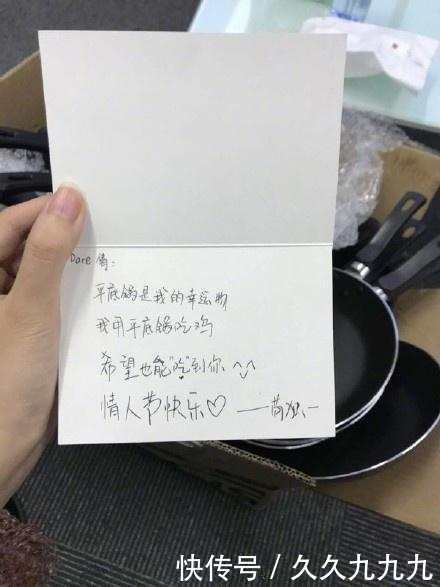 Dare 俏:
平底锅是我的幸运物
我用平底锅吃鸡
希望也能"吃"到你 ^_^
情人节快乐♡ ——苟狄一
快传号 / 久久九九九